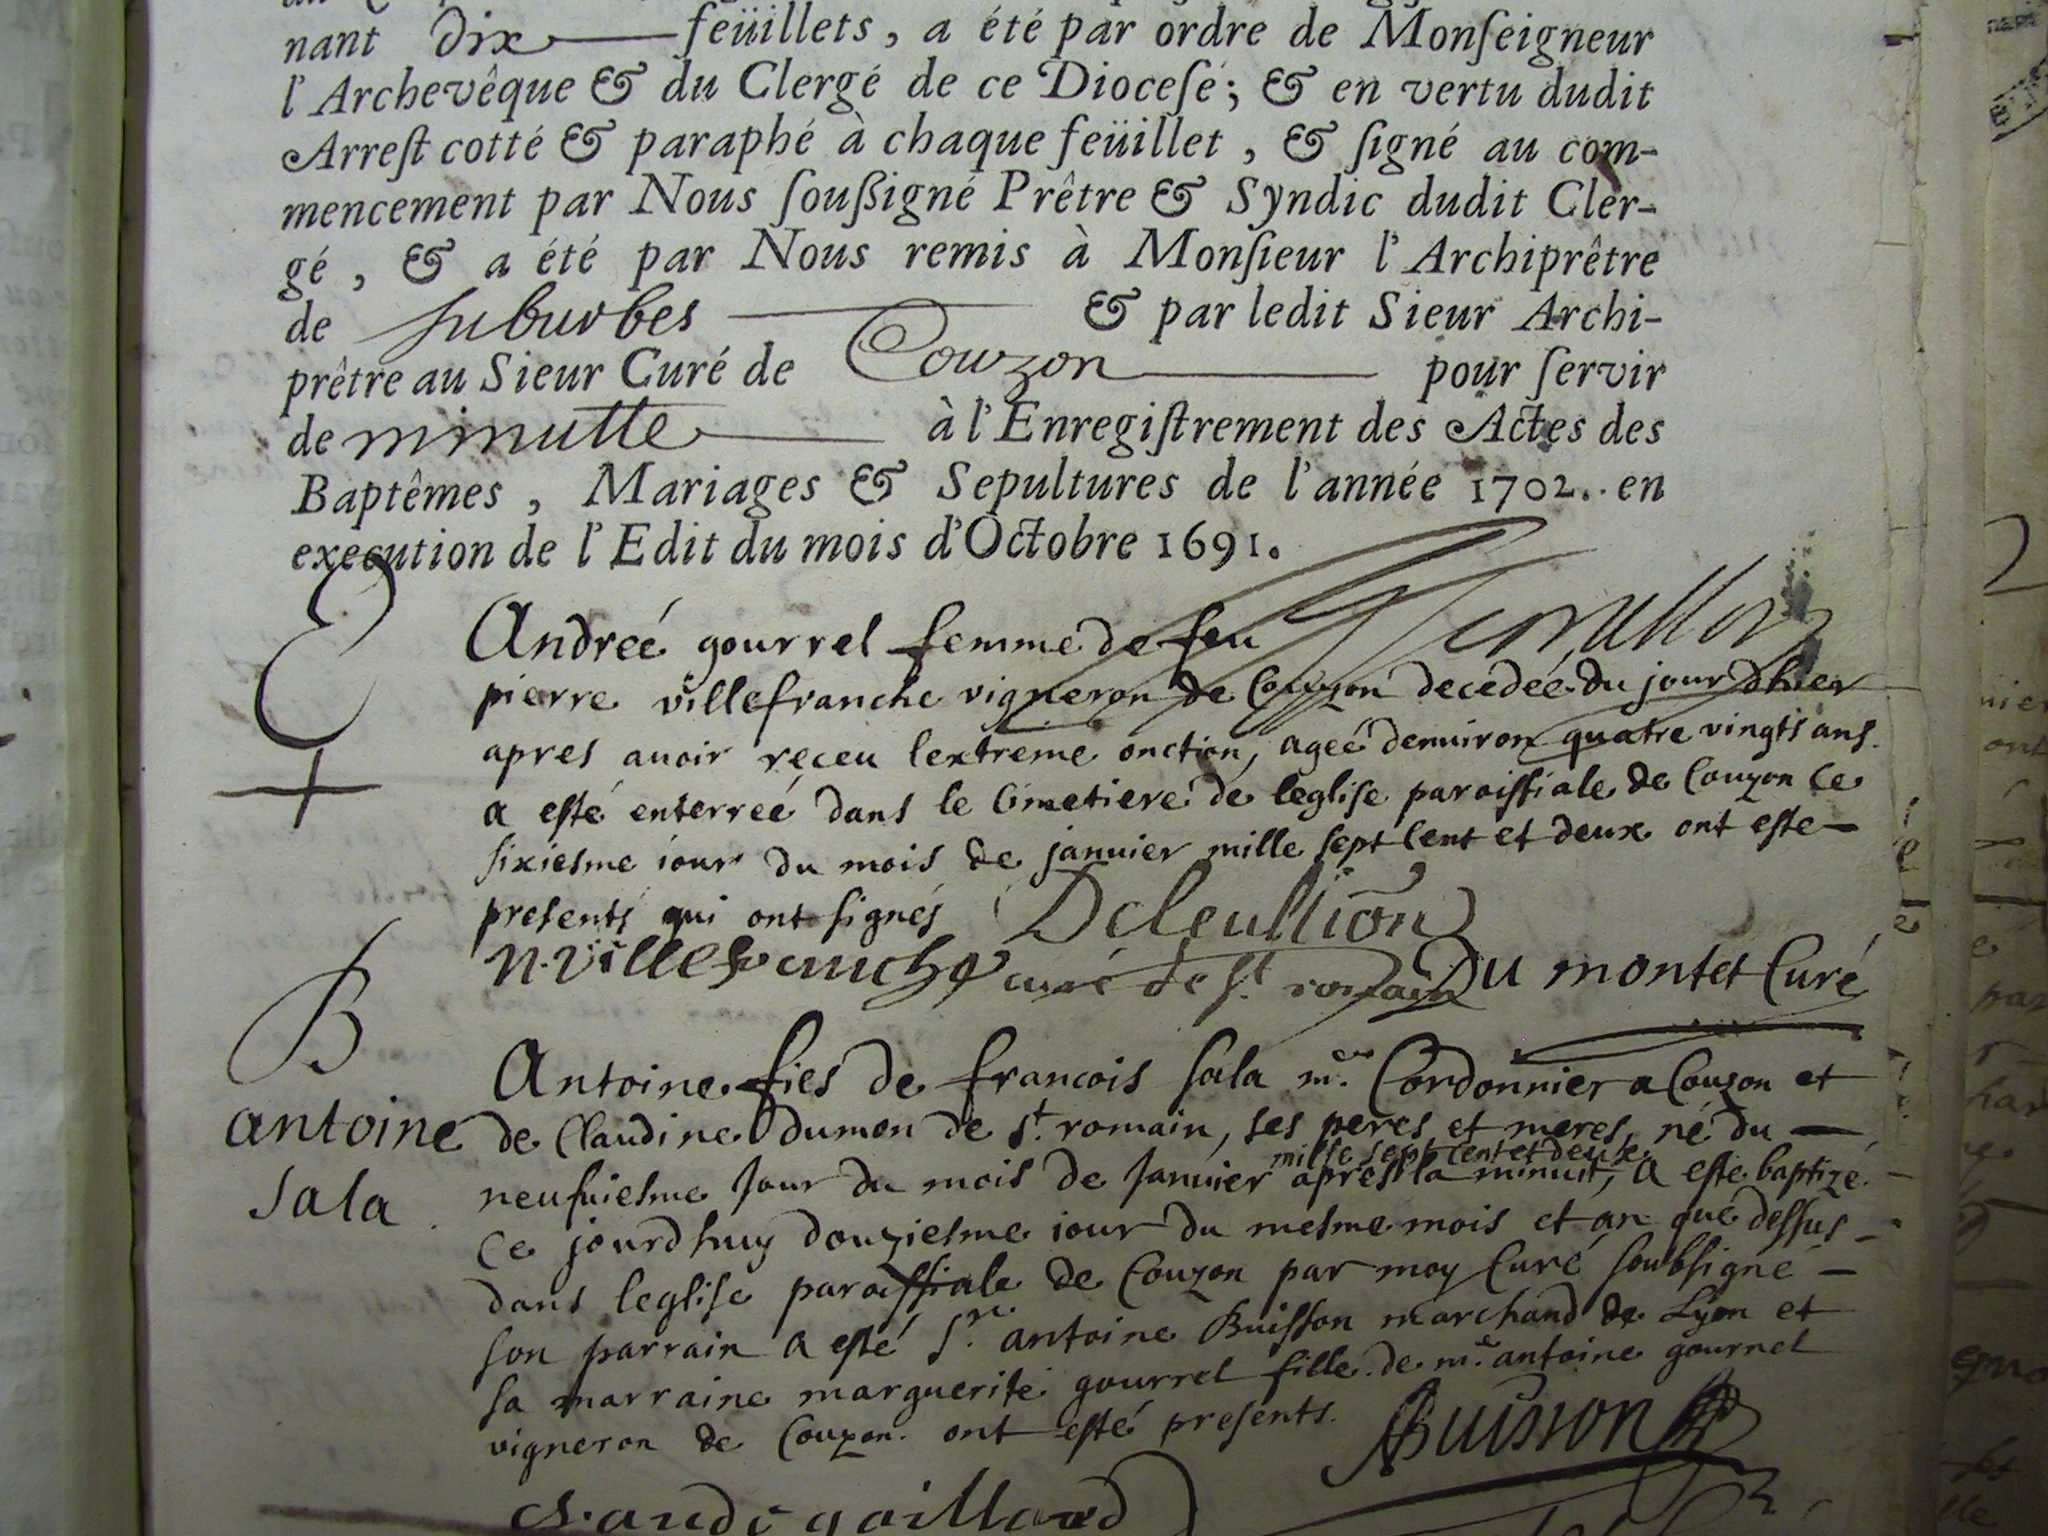 nant dix feüillets, a été par ordre de Monſeigneur
l'Archevêque & du Clergé de ce Dioceſe; & en vertu dudit
Arreſt cotté & paraphé à chaque feüillet, & ſigné au com-
mencement par Nous ſouſſigné Prêtre & Syndic dudit Cler-
gé, & a été par Nous remis à Monſieur l'Archiprêtre
de suburbes & par ledit Sieur Archi-
prêtre au Sieur Curé de Couzon pour ſervir
de minutte à l'Enregiſtrement des Actes des
Baptêmes, Mariages & Sepultures de l'année 1702. en
execution de l'Edit du mois d'Octobre 1691.
Andreé gourrel femme de feu
pierre villefranche vigneron de Couzon decedeé du jour dhier
apres auoir receu lextreme onction, ageé denuiron quatre vingts ans
a esté enterreé dans le Cimetiere de leglise paroissiale de Couzon Ce
sixiesme iour du mois de januier mille sept Cent et deux ont este
presents qui ont signés
n. villefranche curé de St. romain Du montet Curé
B
antoine
sala
Antoine fies de francois sala me. Cordonnier a Couzon et
de Claudine dumon de St. romain, ses peres et meres, né du
neufuiesme Jour du mois de Januier mille sept Cent et deux apres la minuit, a este baptizé
Ce jourdhuy douziesme iour du mesme mois et an que dessus
dans leglise paroissiale de Couzon par moy Curé soubsigné
son parrain a esté Sr. antoine Buisson marchand de Lyon et
sa marraine marguerite gourrel fille de me. antoine gourrel
vigneron de Couzon. ont esté presents. Buisson
gaillard